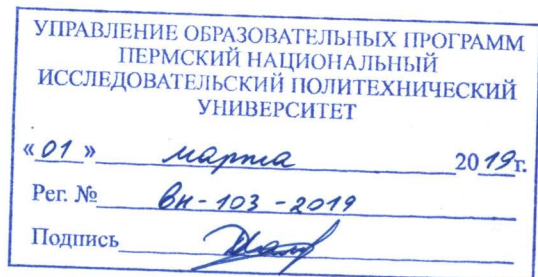 УПРАВЛЕНИЕ ОБРАЗОВАТЕЛЬНЫХ ПРОГРАММ
ПЕРМСКИЙ НАЦИОНАЛЬНЫЙ
ИССЛЕДОВАТЕЛЬСКИЙ ПОЛИТЕХНИЧЕСКИЙ
УНИВЕРСИТЕТ
«01» марта 2019г.
Рег. № вн-103-2019
Подпись